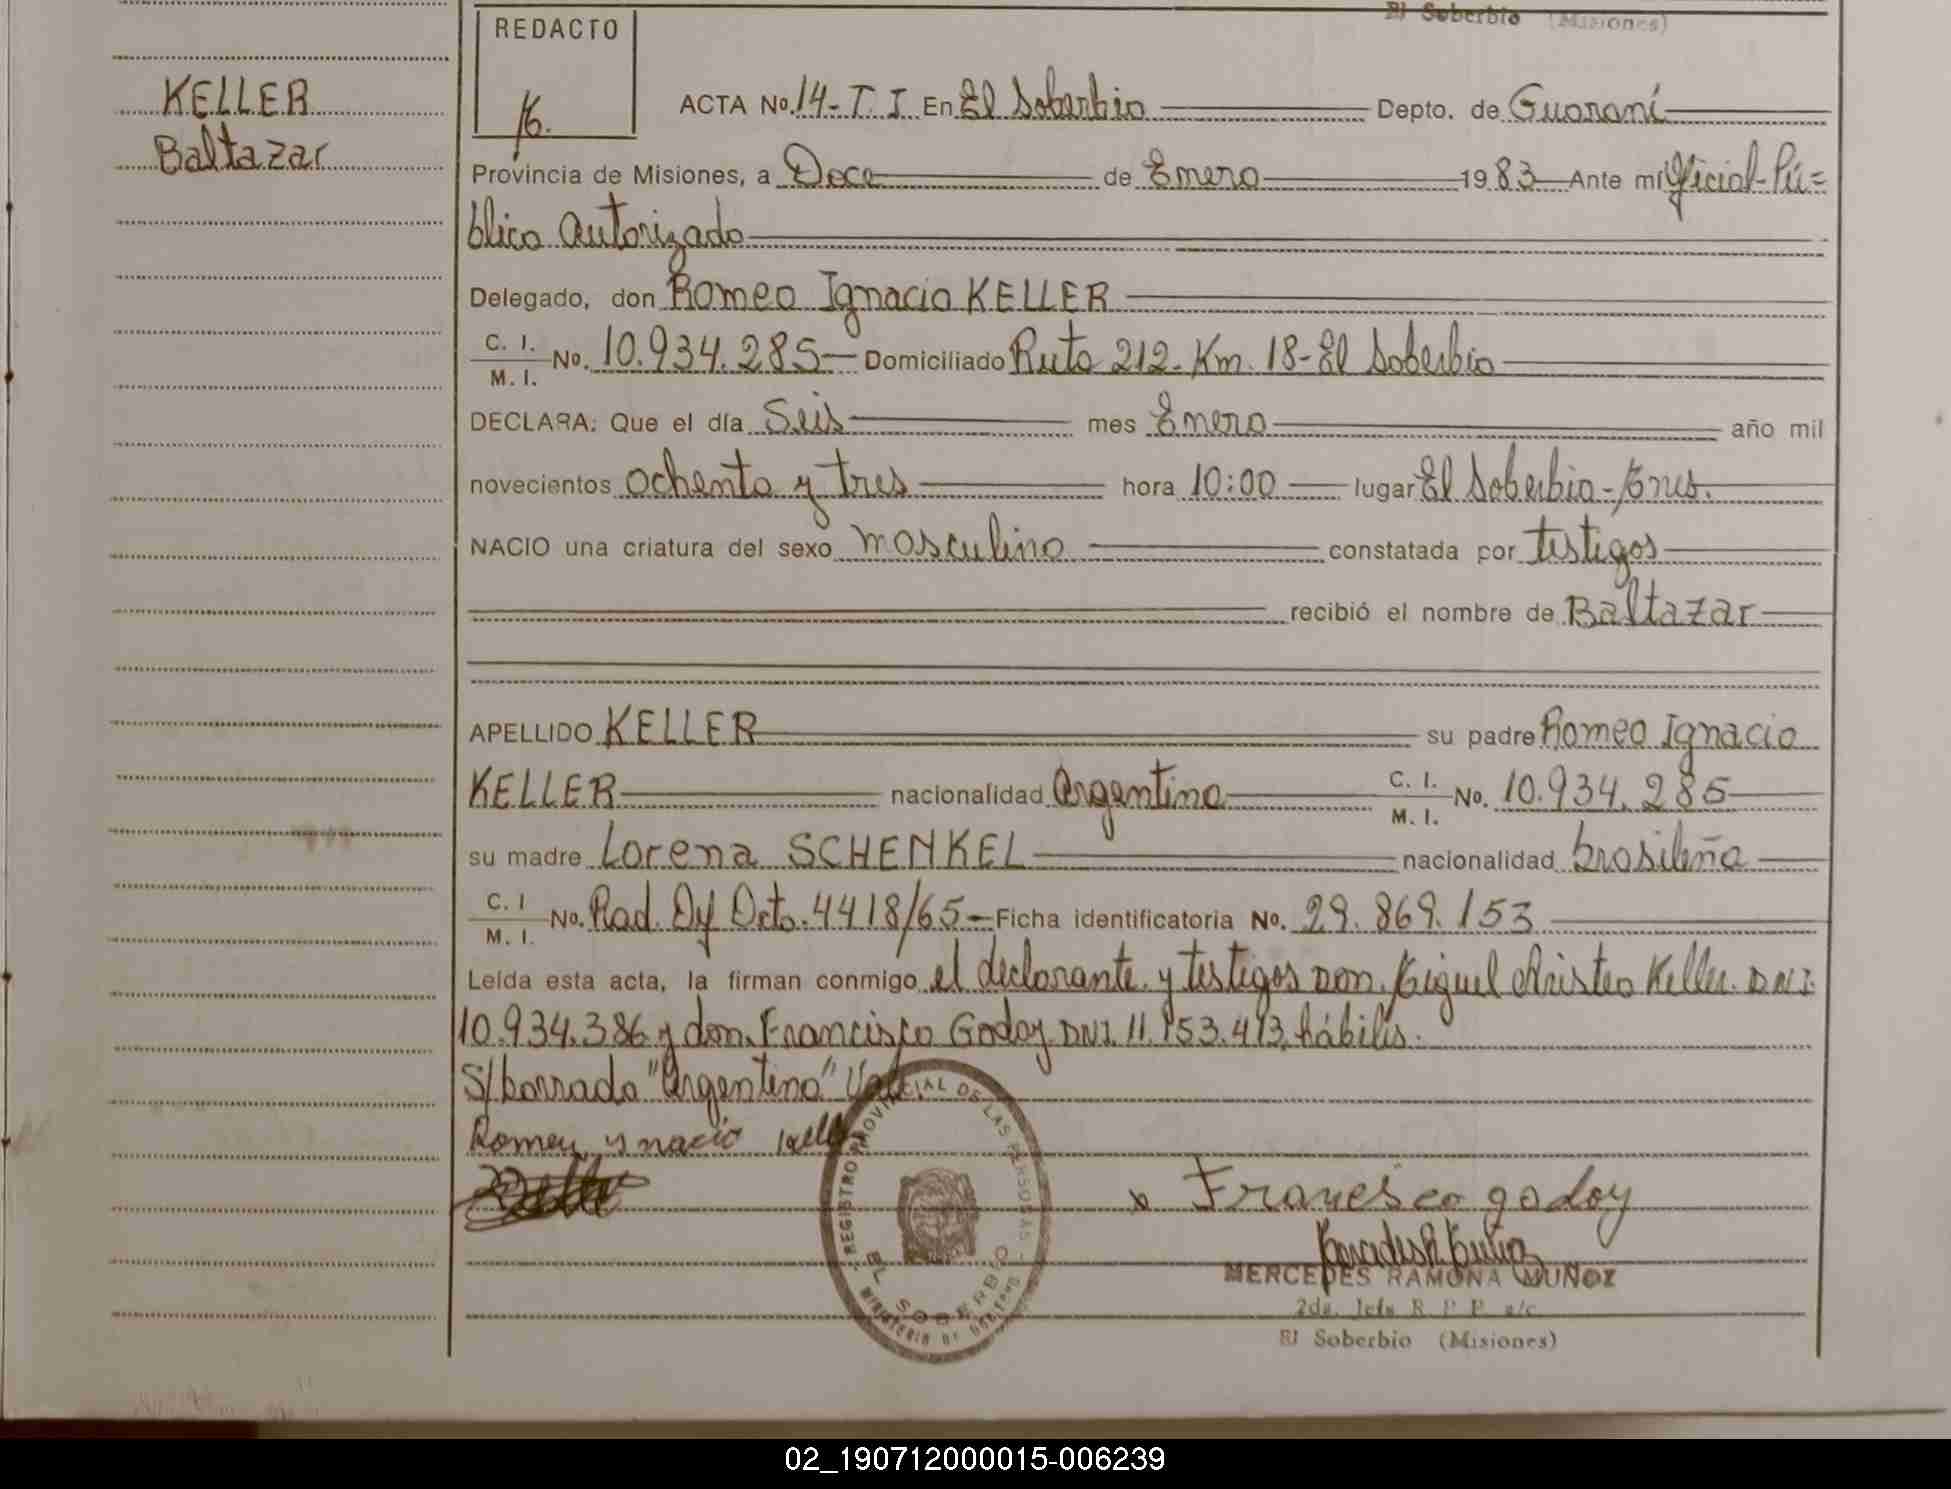 El Soberbio (Misiones)
REDACTO
KELLER
Baltazar
ACTA No. 14-T. I. En El Soberbio Depto. de Guaraní
Provincia de Misiones, a Doce de Enero 1983 Ante mí Oficial Pú=
blico Autorizado
Delegado, don Romeo Ignacio KELLER
C. I.
M. I. No. 10.934.285- Domiciliado Ruta 212- Km. 18- El Soberbio
DECLARA: Que el día Seis mes Enero año mil
novecientos ochenta y tres hora 10:00 lugar El Soberbio-
NACIO una criatura del sexo masculino constatada por testigos
recibió el nombre de Baltazar
APELLIDO KELLER su padre Romeo Ignacio
KELLER nacionalidad Argentina C. I.
M. I. No. 10.934.285
su madre Lorena SCHENKEL nacionalidad brasileña
C. I
M. I. No. Rad. Dto. 4418/65- Ficha identificatoria No. 29.869.153
Leída esta acta, la firman conmigo el declarante y testigos Don. Miguel Aristeo Keller. D.N.I.
10.934.386 y don. Francisco Godoy DNI. 11.153.413, hábiles.
S/borrado "Argentina" Vale
Romeu ynacio Keller
Francisco godoy
REGISTRO PROVINCIAL DE LAS PERSONAS
EL SOBERBIO
MINISTERIO DE GOBIERNO
MERCEDES RAMONA MUÑOZ
2da. Jefe R. P. P. a/c
El Soberbio (Misiones)
02_190712000015-006239